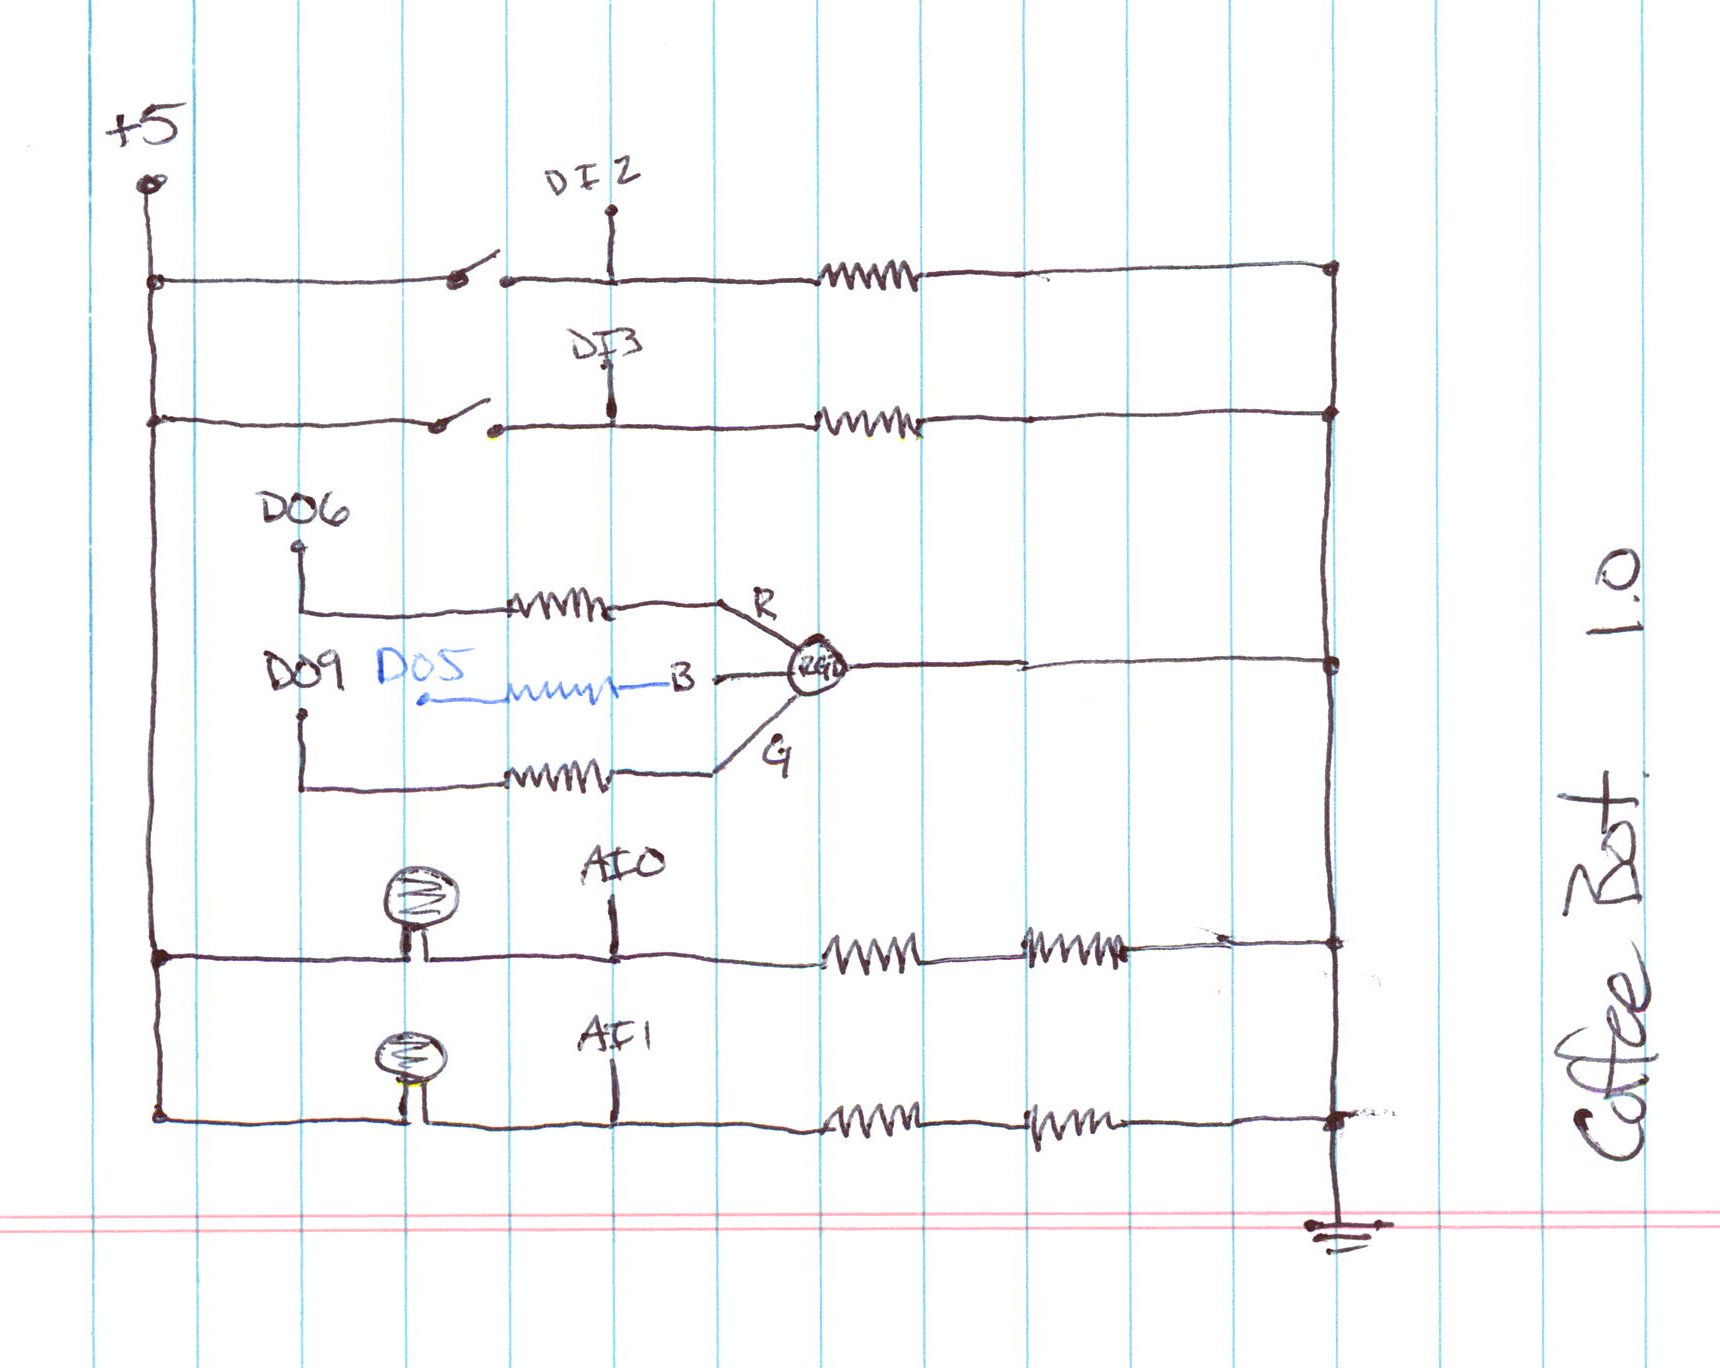 +5
DI2
DI3
DO6
R
DO9 DO5 B
G
AIO
AI1
Coffee Bot 1.0